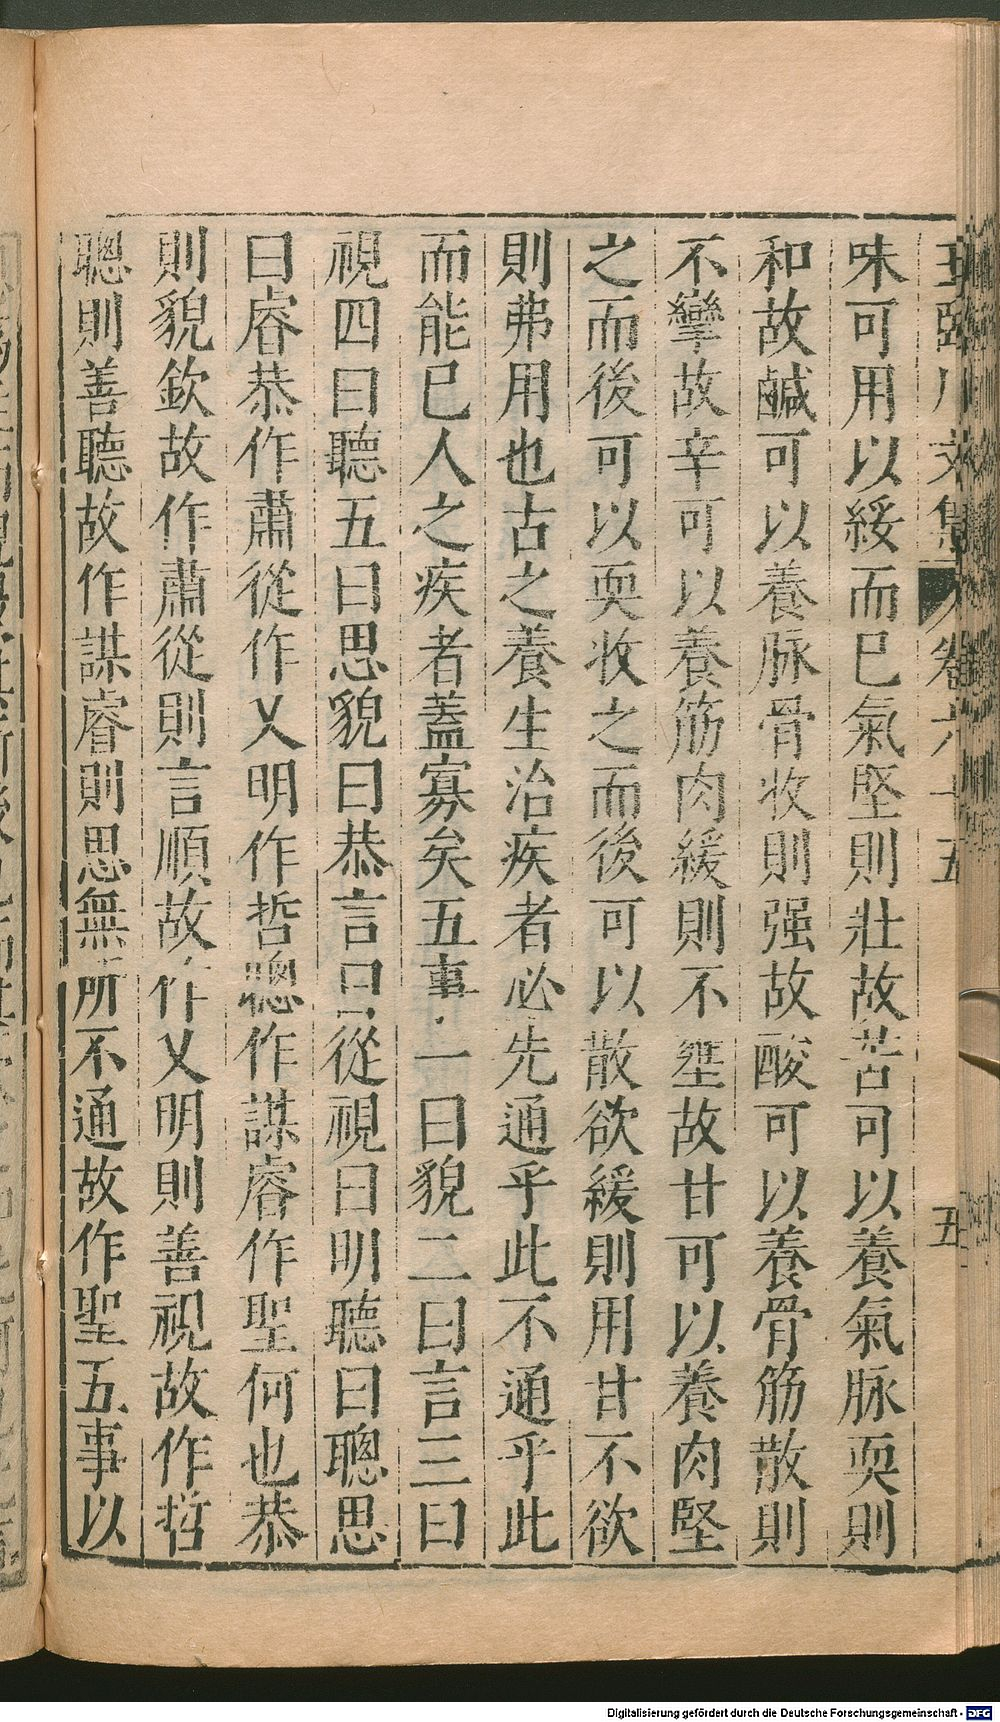 王臨川文集 卷六十五 五
味可用以綏而已氣堅則壯故苦可以養氣脉耎則
和故鹹可以養脉骨收則强故酸可以養骨筋散則
不攣故辛可以養筋肉緩則不壅故甘可以養肉堅
之而後可以耎收之而後可以散欲緩則用甘不欲
則弗用也古之養生治疾者必先通乎此不通乎此
而能已人之疾者蓋寡矣五事一曰貌二曰言三曰
視四曰聽五曰思貌曰恭言曰從視曰明聽曰聰思
曰睿恭作肅從作乂明作哲聰作謀睿作聖何也恭
則貌欽故作肅從則言順故作乂明則善視故作哲
聰則善聽故作謀睿則思無所不通故作聖五事以
Digitalisierung gefördert durch die Deutsche Forschungsgemeinschaft - DFG